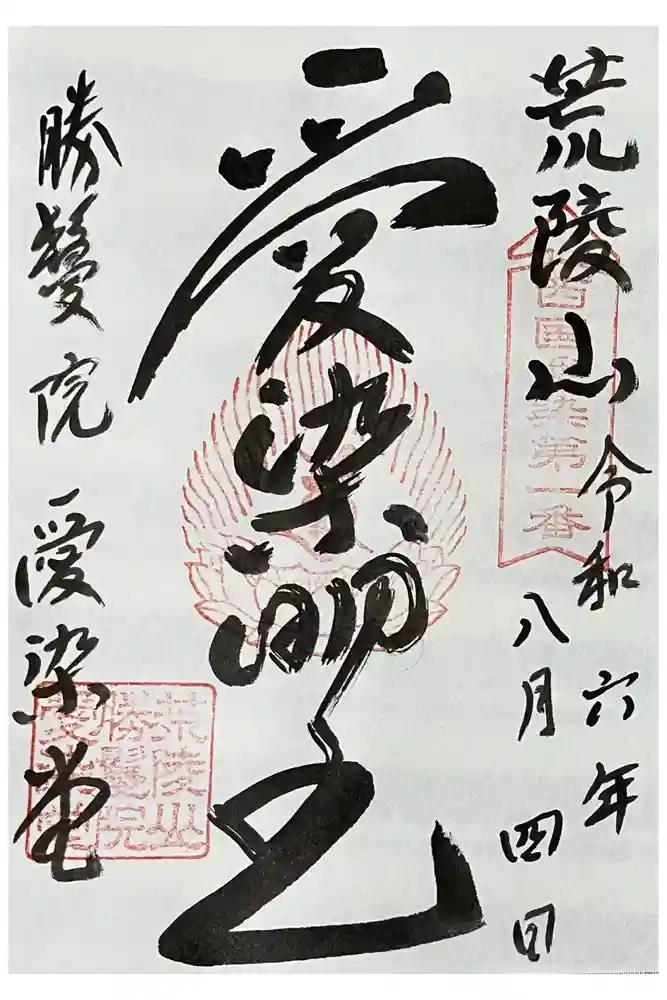 荒陵山
令和六年
八月四日
西国愛染第一番
愛染明王
勝鬘院 愛染堂
荒陵山
勝鬘院
愛染堂